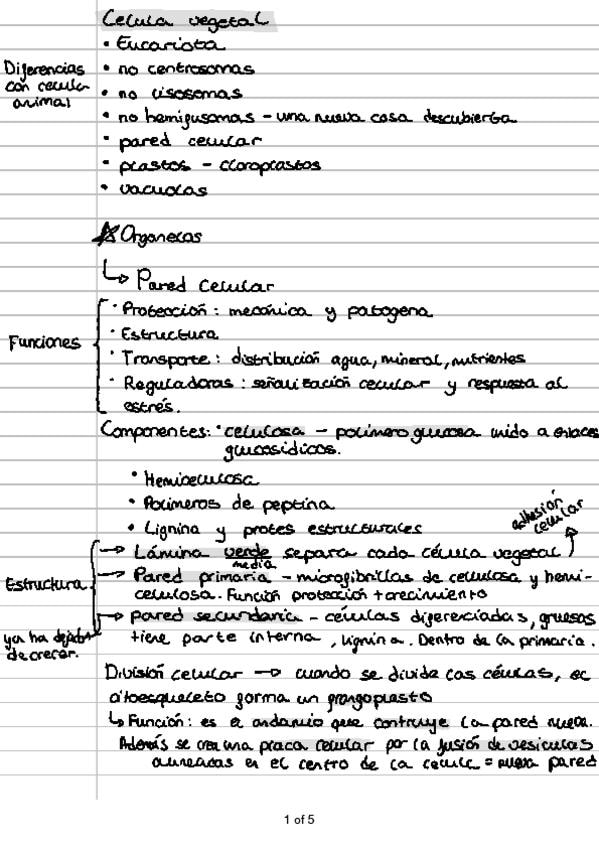 Celula vegetal
• Eucariota
Diferencias con celula animal
• no centrosomas
• no lisosomas
• no hemifusomas - una nueva cosa descubierta
• pared celular
• plastos - cloroplastos
• vacuolas
Organelas
↳ Pared celular
Funciones
· Protección: mecánica y patogena
· Estructura
· Transporte: distribución agua, mineral, nutrientes
· Reguladoras: señalización celular y respuesta al
estrés.
Componentes: · celulosa - polímero glucosa unido a enlaces
glucosídicos.
• Hemicelulosa
• Polimeros de peptina
• Lignina y protes estructurales
adhesión celular
Estructura
→ Lámina verde separa cada célula vegetal
media
→ Pared primaria - microfibrillas de cellulosa y hemi-
celulosa. Función protección + crecimiento
→ pared secundaria - células diferenciadas, gruesas
ya ha dejado de crecer.
tiene parte interna, lignina. Dentro de la primaria.
División celular → cuando se divide las células, el
citoesqueleto forma un fragmoplasto
↳ Función: es el andamio que contruye la pared nueva.
Además se crea una placa celular por la fusión de vesiculas
alineadas en el centro de la celula = nueva pared
1 of 5